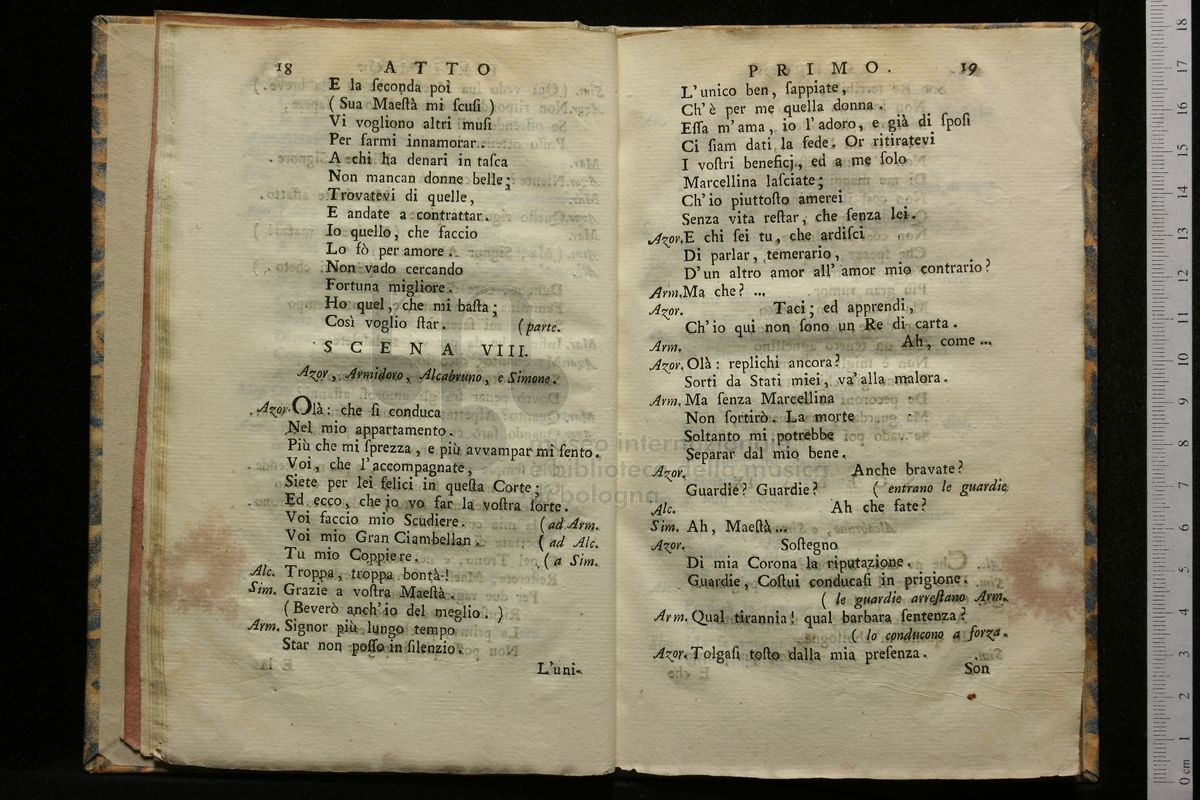 18 ATTO
E la ſeconda poi
( Sua Maeſtà mi ſcuſi )
Vi vogliono altri muſi
Per farmi innamorar.
A chi ha denari in taſca
Non mancan donne belle;
Trovatevi di quelle,
E andate a contrattar.
Io quello, che faccio
Lo fò per amore.
Non vado cercando
Fortuna migliore.
Ho quel, che mi baſta;
Così voglio ſtar. (parte.
SCENA VIII.
Azor, Armidoro, Alcabruno, e Simone.
Azor. Olà: che ſi conduca
Nel mio appartamento.
Più che mi ſprezza, e più avvampar mi ſento.
Voi, che l'accompagnate,
Siete per lei felici in queſta Corte;
Ed ecco, che io vo far la voſtra ſorte.
Voi faccio mio Scudiere. (ad Arm.
Voi mio Gran Ciambellan. (ad Alc.
Tu mio Coppiere. (a Sim.
Alc. Troppa, troppa bontà!
Sim. Grazie a voſtra Maeſtà.
(Beverò anch'io del meglio.)
Arm. Signor più lungo tempo
Star non poſſo in ſilenzio.
L'uni-
PRIMO. 19
L'unico ben, ſappiate,
Ch'è per me quella donna.
Eſſa m'ama, io l'adoro, e già di ſpoſi
Ci ſiam dati la fede. Or ritiratevi
I voſtri beneficj, ed a me ſolo
Marcellina laſciate;
Ch'io piuttoſto amerei
Senza vita reſtar, che ſenza lei.
Azor. E chi ſei tu, che ardiſci
Di parlar, temerario,
D'un altro amor all' amor mio contrario?
Arm. Ma che? ...
Azor. Taci; ed apprendi,
Ch'io qui non ſono un Re di carta.
Arm. Ah, come ...
Azor. Olà: replichi ancora?
Sorti da Stati miei, va' alla malora.
Arm. Ma ſenza Marcellina
Non ſortirò. La morte
Soltanto mi potrebbe
Separar dal mio bene.
Azor. Anche bravate?
Guardie? Guardie? (entrano le guardie
Alc. Ah che fate?
Sim. Ah, Maeſtà ...
Azor. Soſtegno
Di mia Corona la riputazione.
Guardie, Coſtui conducaſi in prigione.
( le guardie arreſtano Arm.
Arm. Qual tirannia! qual barbara ſentenza?
( lo conducono a forza.
Azor. Tolgaſi toſto dalla mia preſenza.
Son
museo internazionale
e biblioteca della musica
di bologna
0 cm 1 2 3 4 5 6 7 8 9 10 11 12 13 14 15 16 17 18